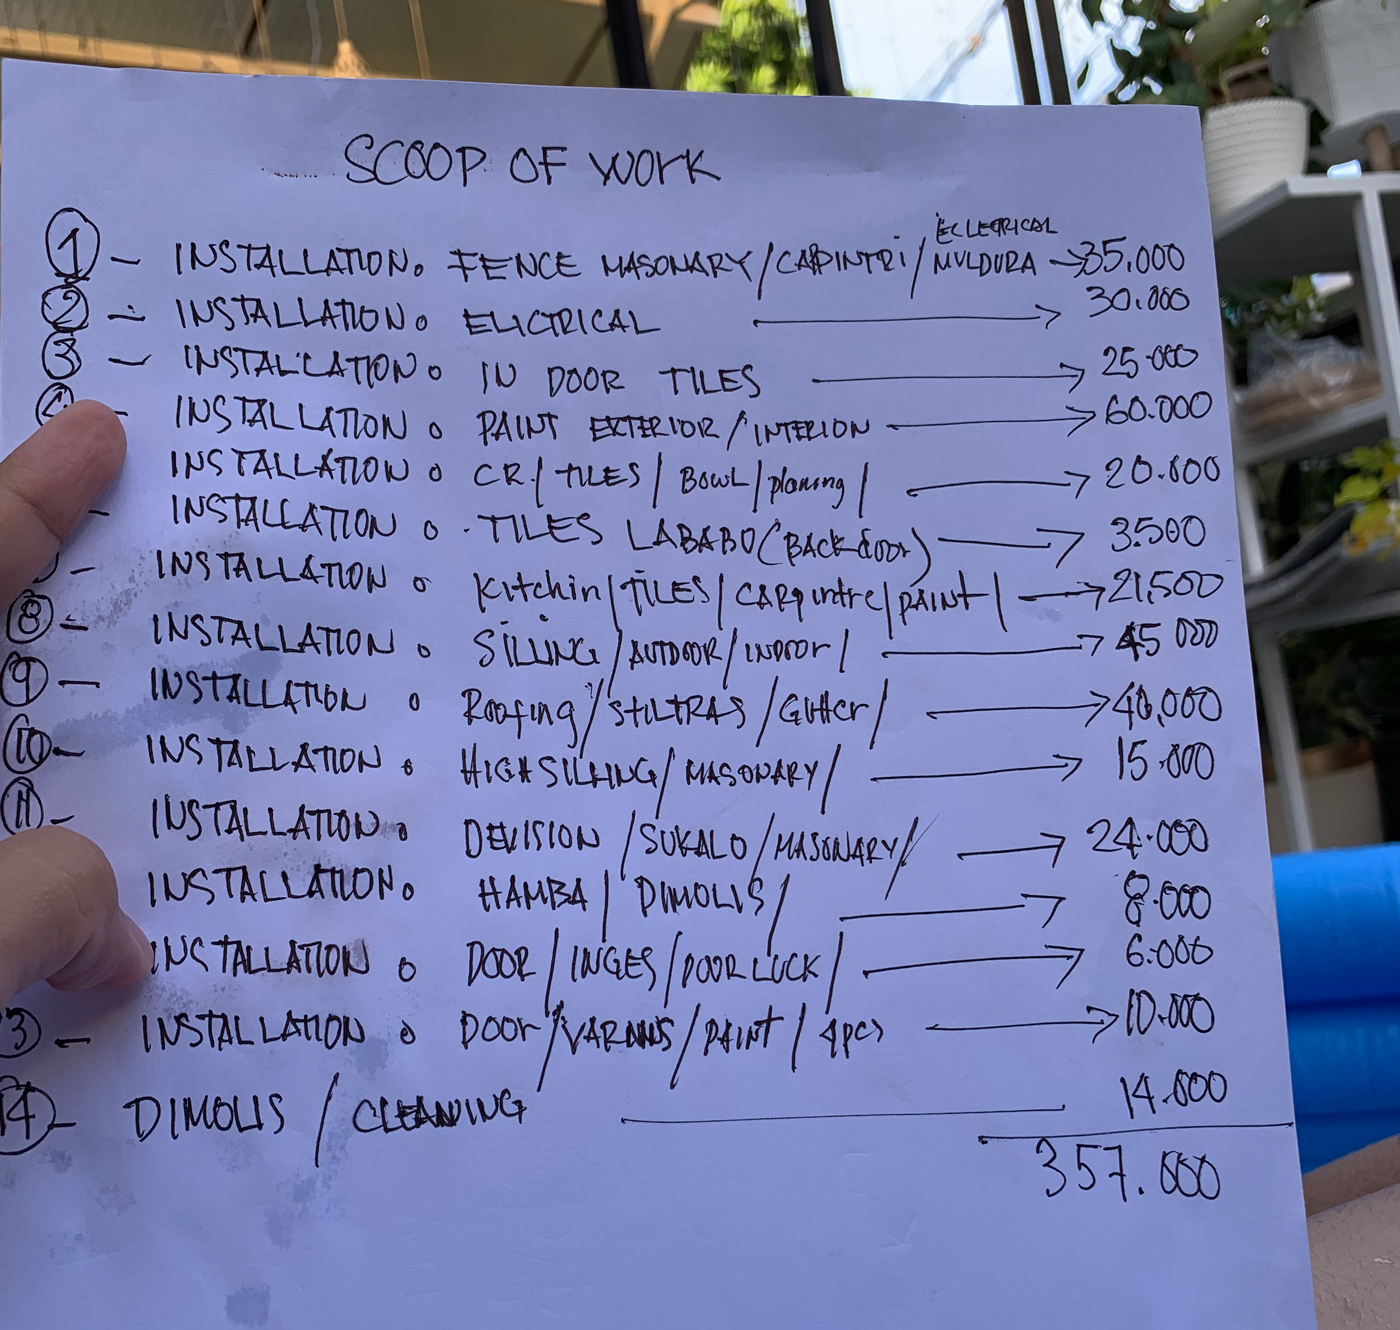 SCOOP OF WORK
ECLETRICAL
1 - INSTALLATION. FENCE MASONARY/CARPINTRI/MULDURA → 35.000
2 - INSTALLATION o ELICTRICAL → 30.000
3 - INSTALLATION o IN DOOR TILES → 25.000
4 - INSTALLATION o PAINT EXTERIOR/INTERION → 60.000
INSTALLATION o CR/TILES/BOWL/ploming/ → 20.000
- INSTALLATION o TILES LABABO (BACK door) → 3.500
- INSTALLATION o Kitchin/TILES/CARpintre/PAINT/ → 21,500
8 - INSTALLATION o SILLING/AUTDOOR/INDOOr/ → 45 000
9 - INSTALLATION o Roofing/STILTRAS/Gutter/ → 40,000
10 - INSTALLATION o HIGH SILLING/MASONARY/ → 15.000
11 - INSTALLATION o DEVISION/SUKALO/MASONARY/ → 24.000
INSTALLATION o HAMBA/DIMOLIS/ → 8.000
INSTALLATION o DOOR/INGES/DOOR LUCK/ → 6.000
3 - INSTALLATION o DOOr/VARNNIS/PAINT/4pcs → 10.000
14 - DIMOLIS/CLEANING 14.000
357.000